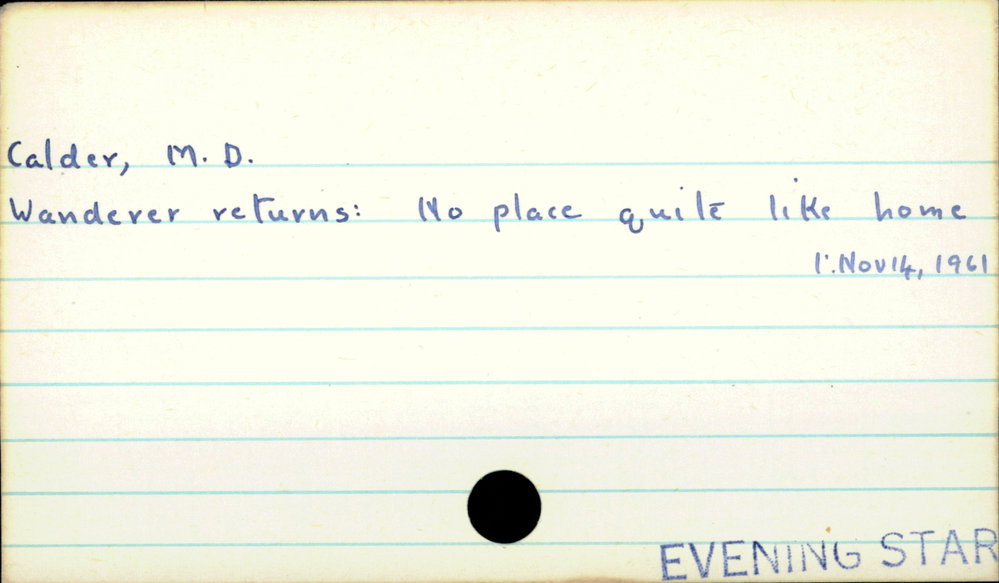 Calder, M. D.
Wanderer returns: No place quite like home
1:Nov14, 1961
EVENING STAR